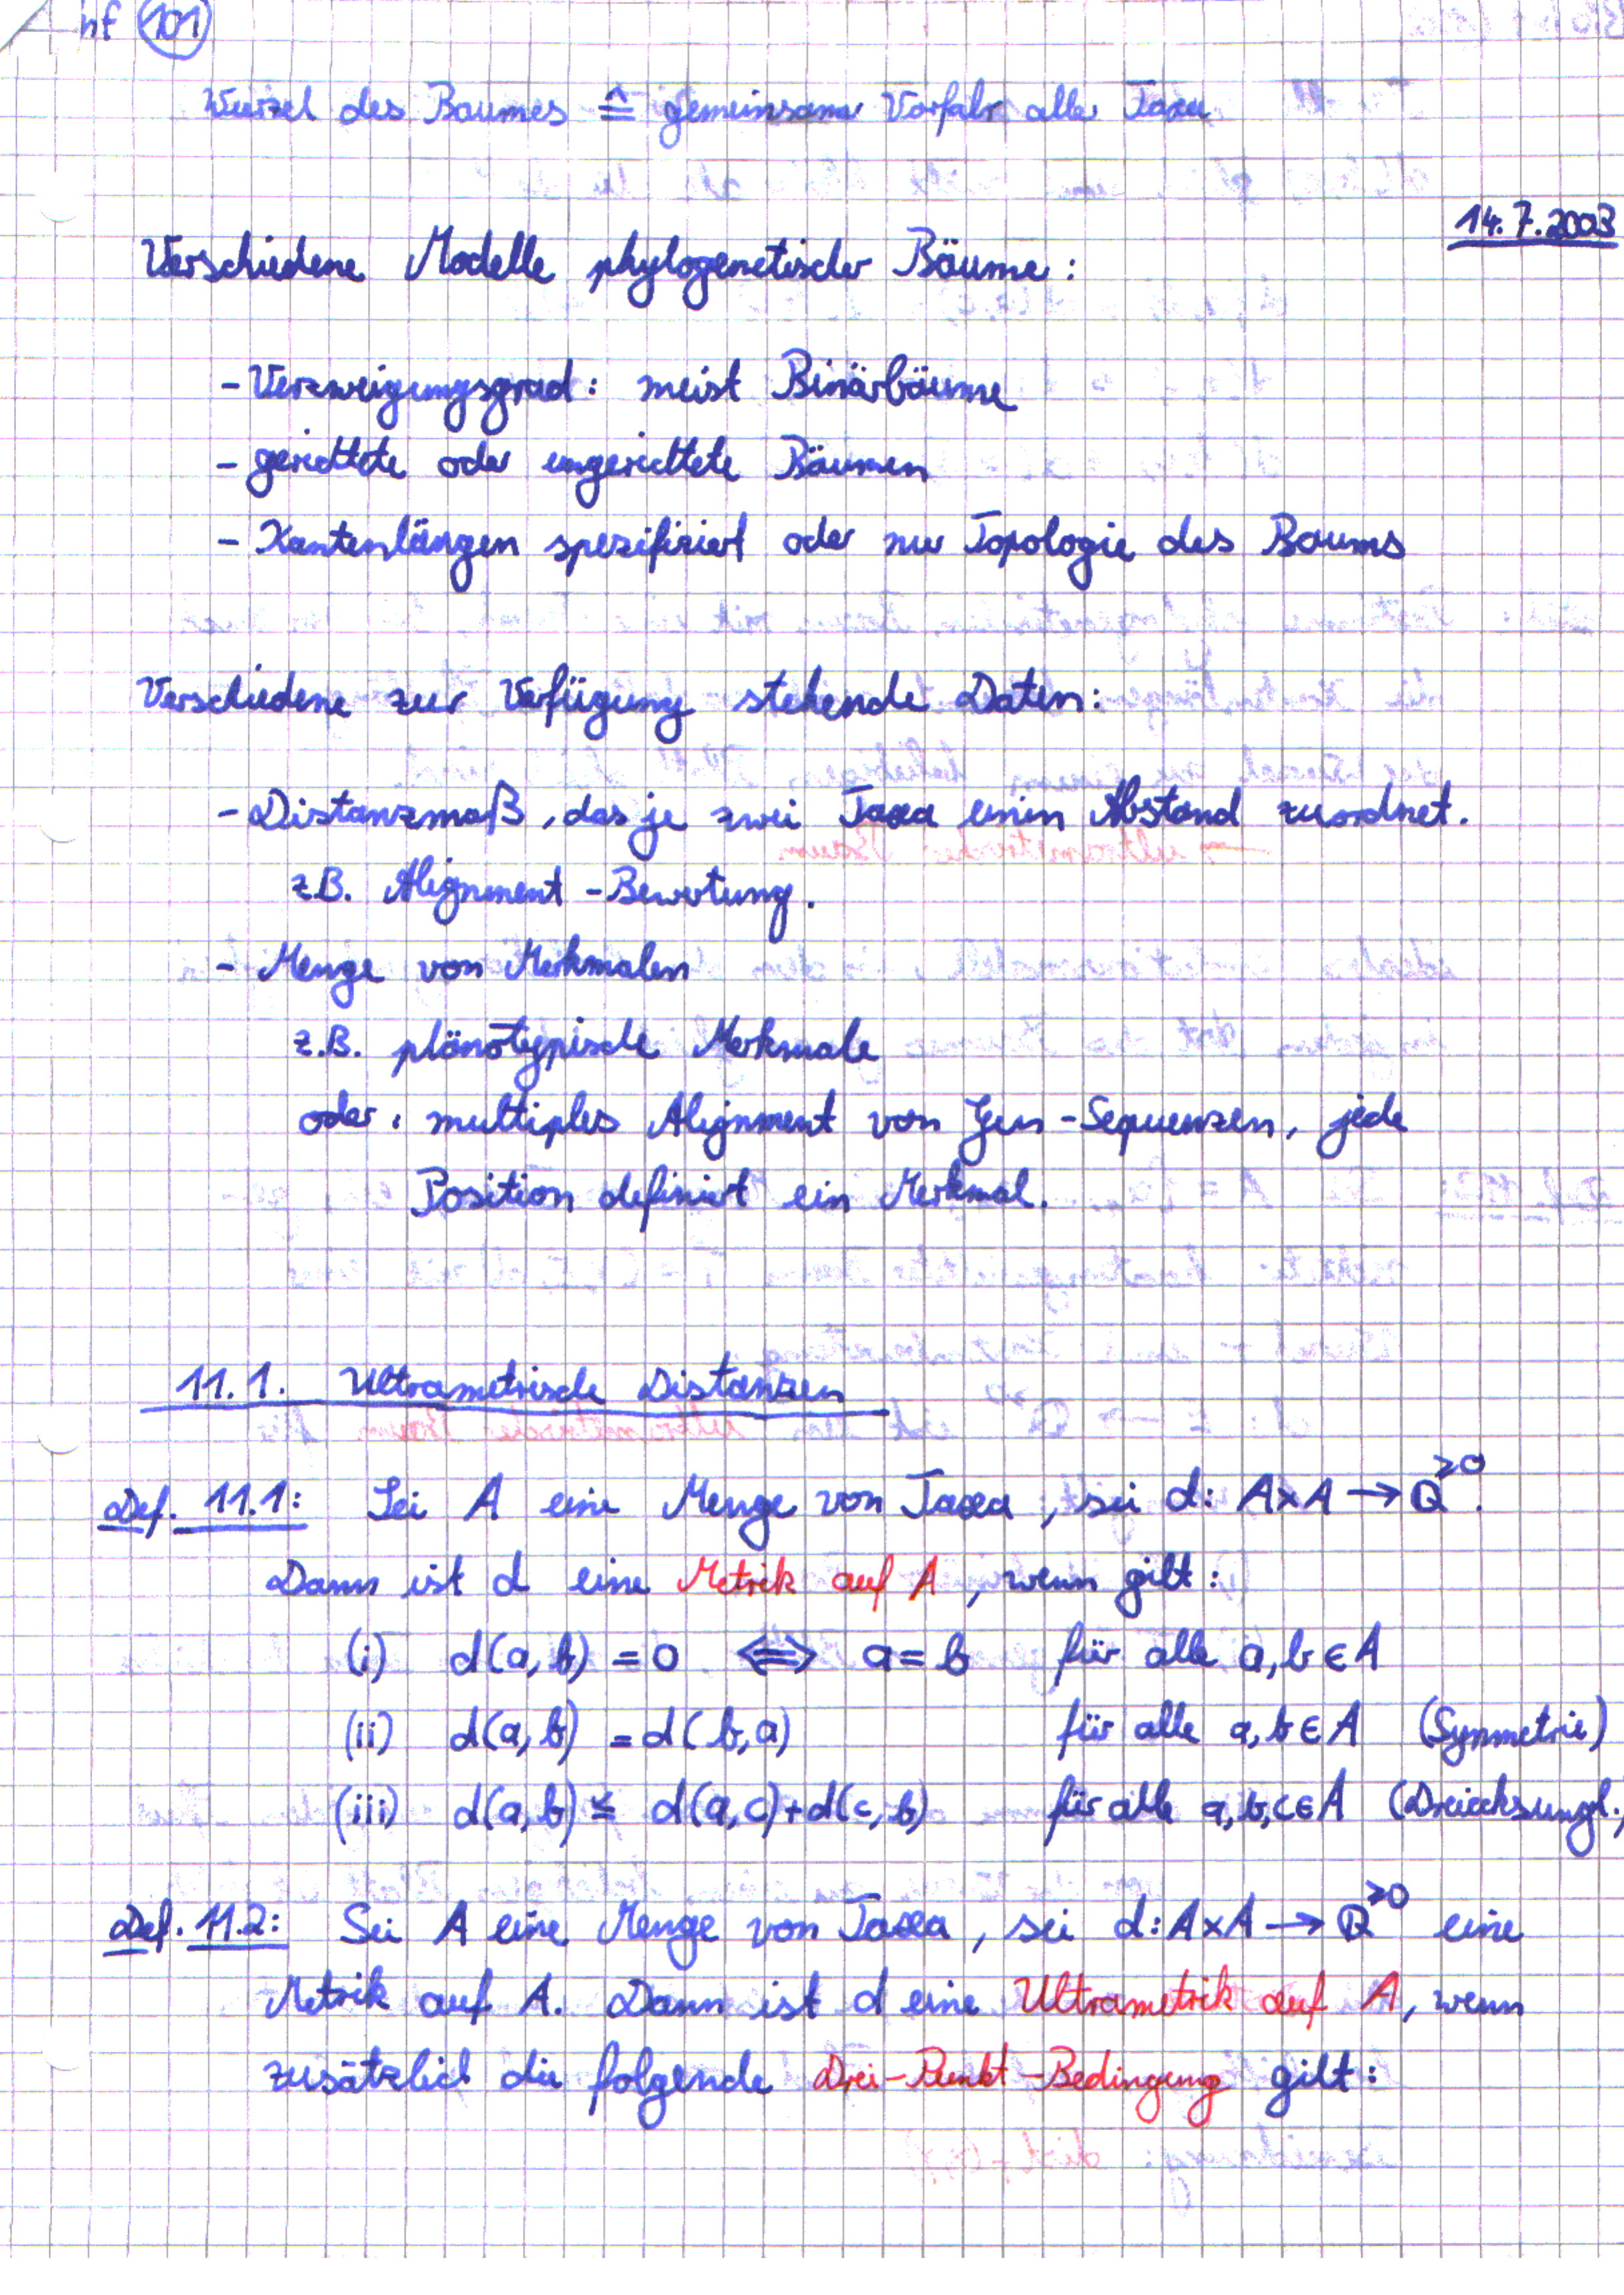 hf 101
Wurzel des Baumes ≙ gemeinsamer Vorfahr aller Taxa
14.7.2003
Verschiedene Modelle phylogenetischer Bäume:
- Verzweigungsgrad: meist Binärbäume
- gerichtete oder ungerichtete Bäumen
- Kantenlängen spezifiziert oder nur Topologie des Baums
Verschiedene zur Verfügung stehende Daten:
- Distanzmaß, das je zwei Taxa einen Abstand zuordnet.
z.B. Alignment-Bewertung.
- Menge von Merkmalen
z.B. phänotypische Merkmale
oder: multiples Alignment von Gen-Sequenzen, jede
Position definiert ein Merkmal.
11.1. Ultrametrische Distanzen
Def. 11.1: Sei A eine Menge von Taxa, sei d: A×A → Q^≥0.
Dann ist d eine Metrik auf A, wenn gilt:
(i) d(a,b) = 0 ⇔ a = b für alle a,b ∈ A
(ii) d(a,b) = d(b,a) für alle a,b ∈ A (Symmetrie)
(iii) d(a,b) ≤ d(a,c)+d(c,b) für alle a,b,c ∈ A (Dreiecksungl.)
Def. 11.2: Sei A eine Menge von Taxa, sei d: A×A → Q^≥0 eine
Metrik auf A. Dann ist d eine Ultrametrik auf A, wenn
zusätzlich die folgende Drei-Punkt-Bedingung gilt: